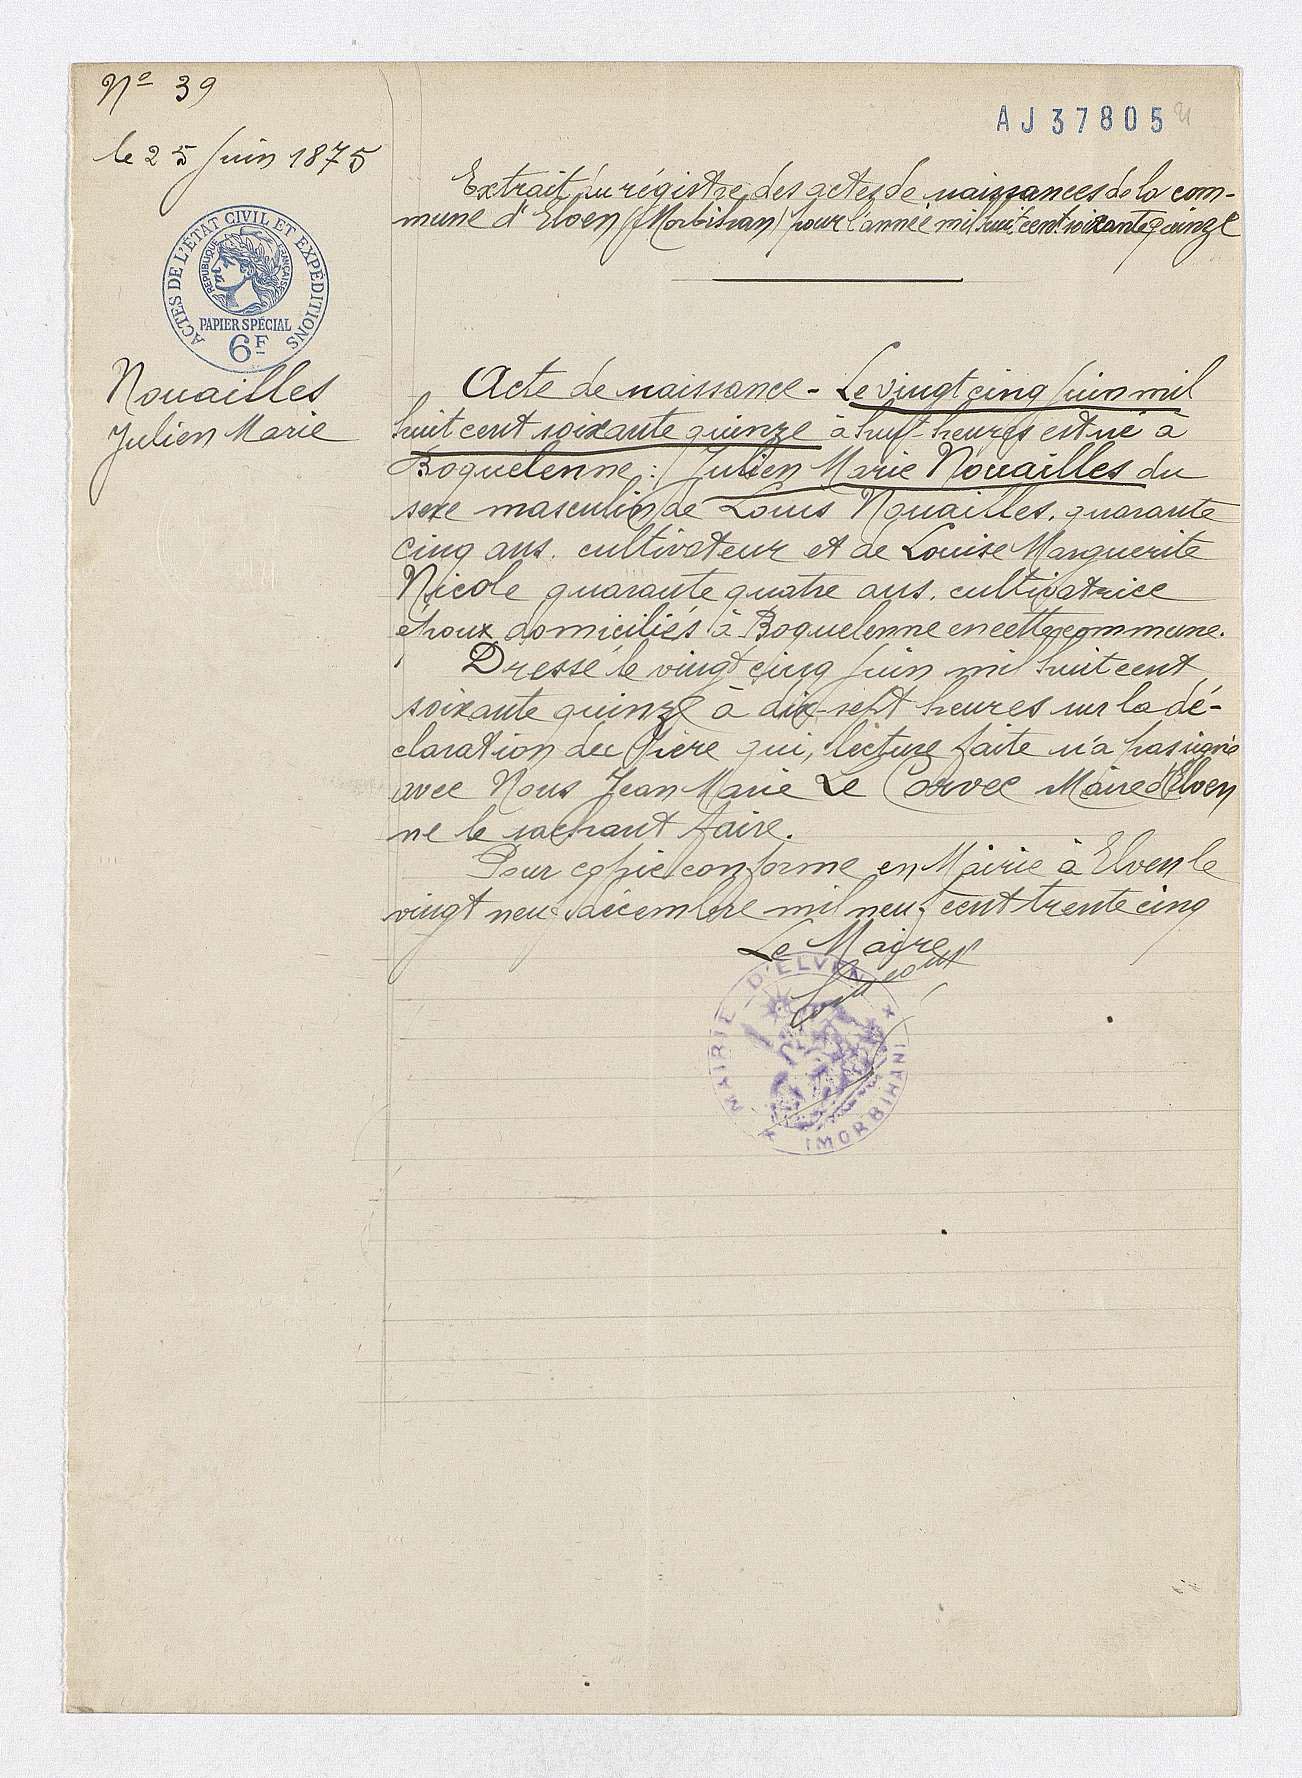 Nº 39
AJ37805
le 25 Juin 1875
Extrait du régistre des actes de naissances de la com-
mune d'Elven (Morbihan) pour l'année mil huit cent soixante quinze
ACTES DE L'ÉTAT CIVIL ET EXPÉDITIONS
RÉPUBLIQUE FRANÇAISE
PAPIER SPÉCIAL
6F
Nouailles
Julien Marie
Acte de naissance - Le vingt cinq Juin mil
huit cent soixante quinze à huit heures est né à
Boquelenne : Julien Marie Nouailles du
sexe masculin de Louis Nouailles, quarante
cinq ans, cultivateur et de Louise Marguerite
Nicole quarante quatre ans, cultivatrice
époux domiciliés à Boquelenne en cette commune.
Dressé le vingt cinq Juin mil huit cent
soixante quinze à dix-sept heures sur la dé-
claration du Père qui, lecture faite n'a pas signé
avec Nous Jean Marie Le Corvec Maire d'Elven
ne le sachant faire.
Pour copie conforme en Mairie à Elven le
vingt neuf décembre mil neuf cent trente cinq
Le Maire
MAIRIE D'ELVEN
(MORBIHAN)